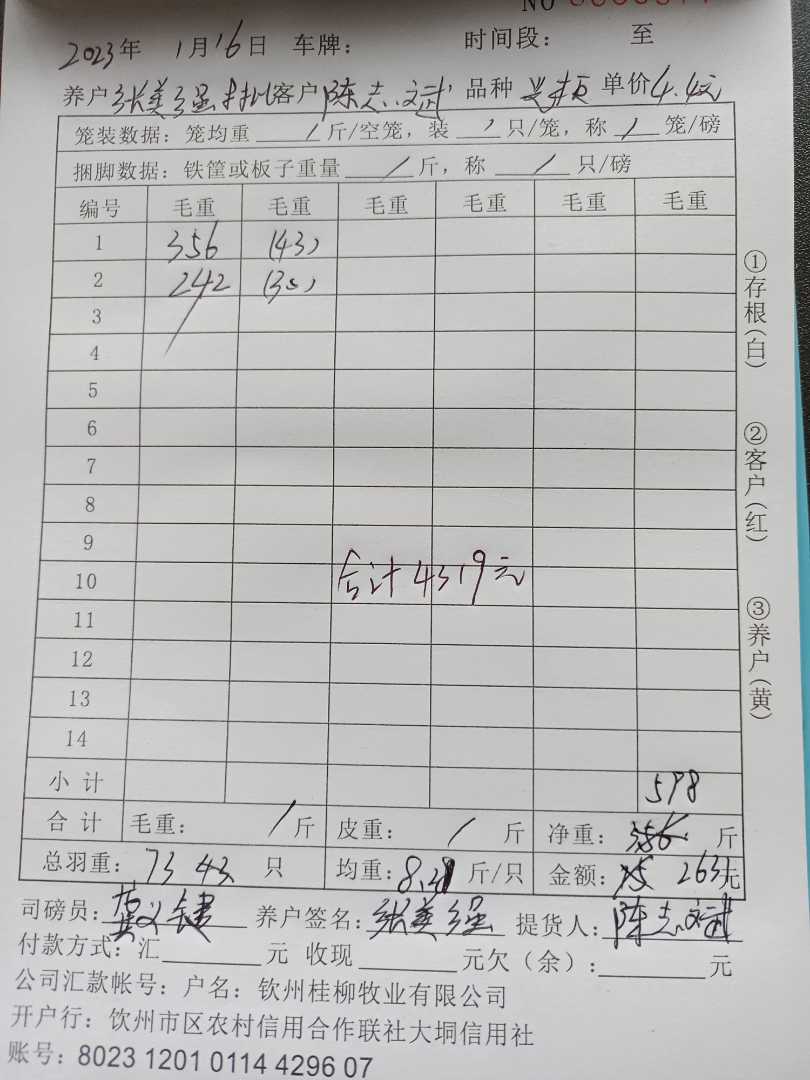 NO
2023年 1月16日 车牌： 时间段： 至
养户 张美强 客户 陈志文武 品种 单价4.4元
笼装数据：笼均重 / 斤/空笼，装 / 只/笼，称 / 笼/磅
捆脚数据：铁筐或板子重量 / 斤，称 / 只/磅
编号 毛重 毛重 毛重 毛重 毛重 毛重
1 356 (43)
2 242 (30)
3
4
5
6
7
8
9
10 合计4319元
11
12
13
14
小计 598
合计 毛重： / 斤 皮重： / 斤 净重： 356 斤
总羽重： 73 43 只 均重： 斤/只 金额： 2631元
司磅员： 龚义健 养户签名： 张美强 提货人： 陈志文武
付款方式：汇 元 收现 元欠（余）： 元
公司汇款帐号：户名：钦州桂柳牧业有限公司
开户行：钦州市区农村信用合作联社大垌信用社
账号：8023 1201 0114 4296 07
①存根(白)
②客户(红)
③养户(黄)